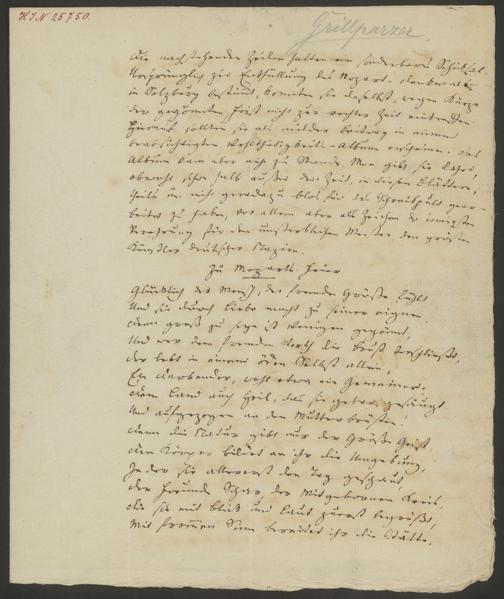 HIN 25750.
Grillparzer.
Die nachstehenden Zeilen hatten ein sonderbares Schicksal.
Ursprünglich zur Enthüllung des Mozart-Denkmales
in Salzburg bestimmt, konnten sie daselbst, wegen Kürze
der gegönnten Frist nicht zur rechten Zeit eintreffen.
Hierauf sollten sie als milder Beitrag in einem
beabsichtigten Wohlthätigkeits-Album erscheinen. Das
Album kam aber nicht zu Stande. Man gibt sie daher,
obwohl schon halb außer der Zeit, in diesen Blättern,
theils um nicht geradezu blos für das Schreibpult gear-
beitet zu haben, vor allem aber als Zeichen der innigsten
Verehrung für den unsterblichen Meister, den größten
Künstler deutscher Nazion.
Zu Mozarts Feier
Glücklich der Mensch, der fremde Größe fühlt
Und sie durch Liebe macht zu seiner eignen.
Denn groß zu sein ist Wenigen gegönnt,
Und wer dem fremden Werth die Brust verschließt,
Der lebt in einem öden Selbst allein,
Ein Darbender, wohl etwa ein Gemeiner.
Dem Land auch Heil, das sie gebar, gesäugt
Und auferzogen an den Mutterbrüsten.
Denn die Natur gibt nur der Größe Geist,
Den Körper bildet an ihr die Umgebung,
In der sie allererst den Tag geschaut,
Der Freunde Schar, der Mitgebornen Kreis,
Die sie mit Blick und Laut zuerst begrüßt,
Mit frommem Sinn bereitet ihr die Stätte.